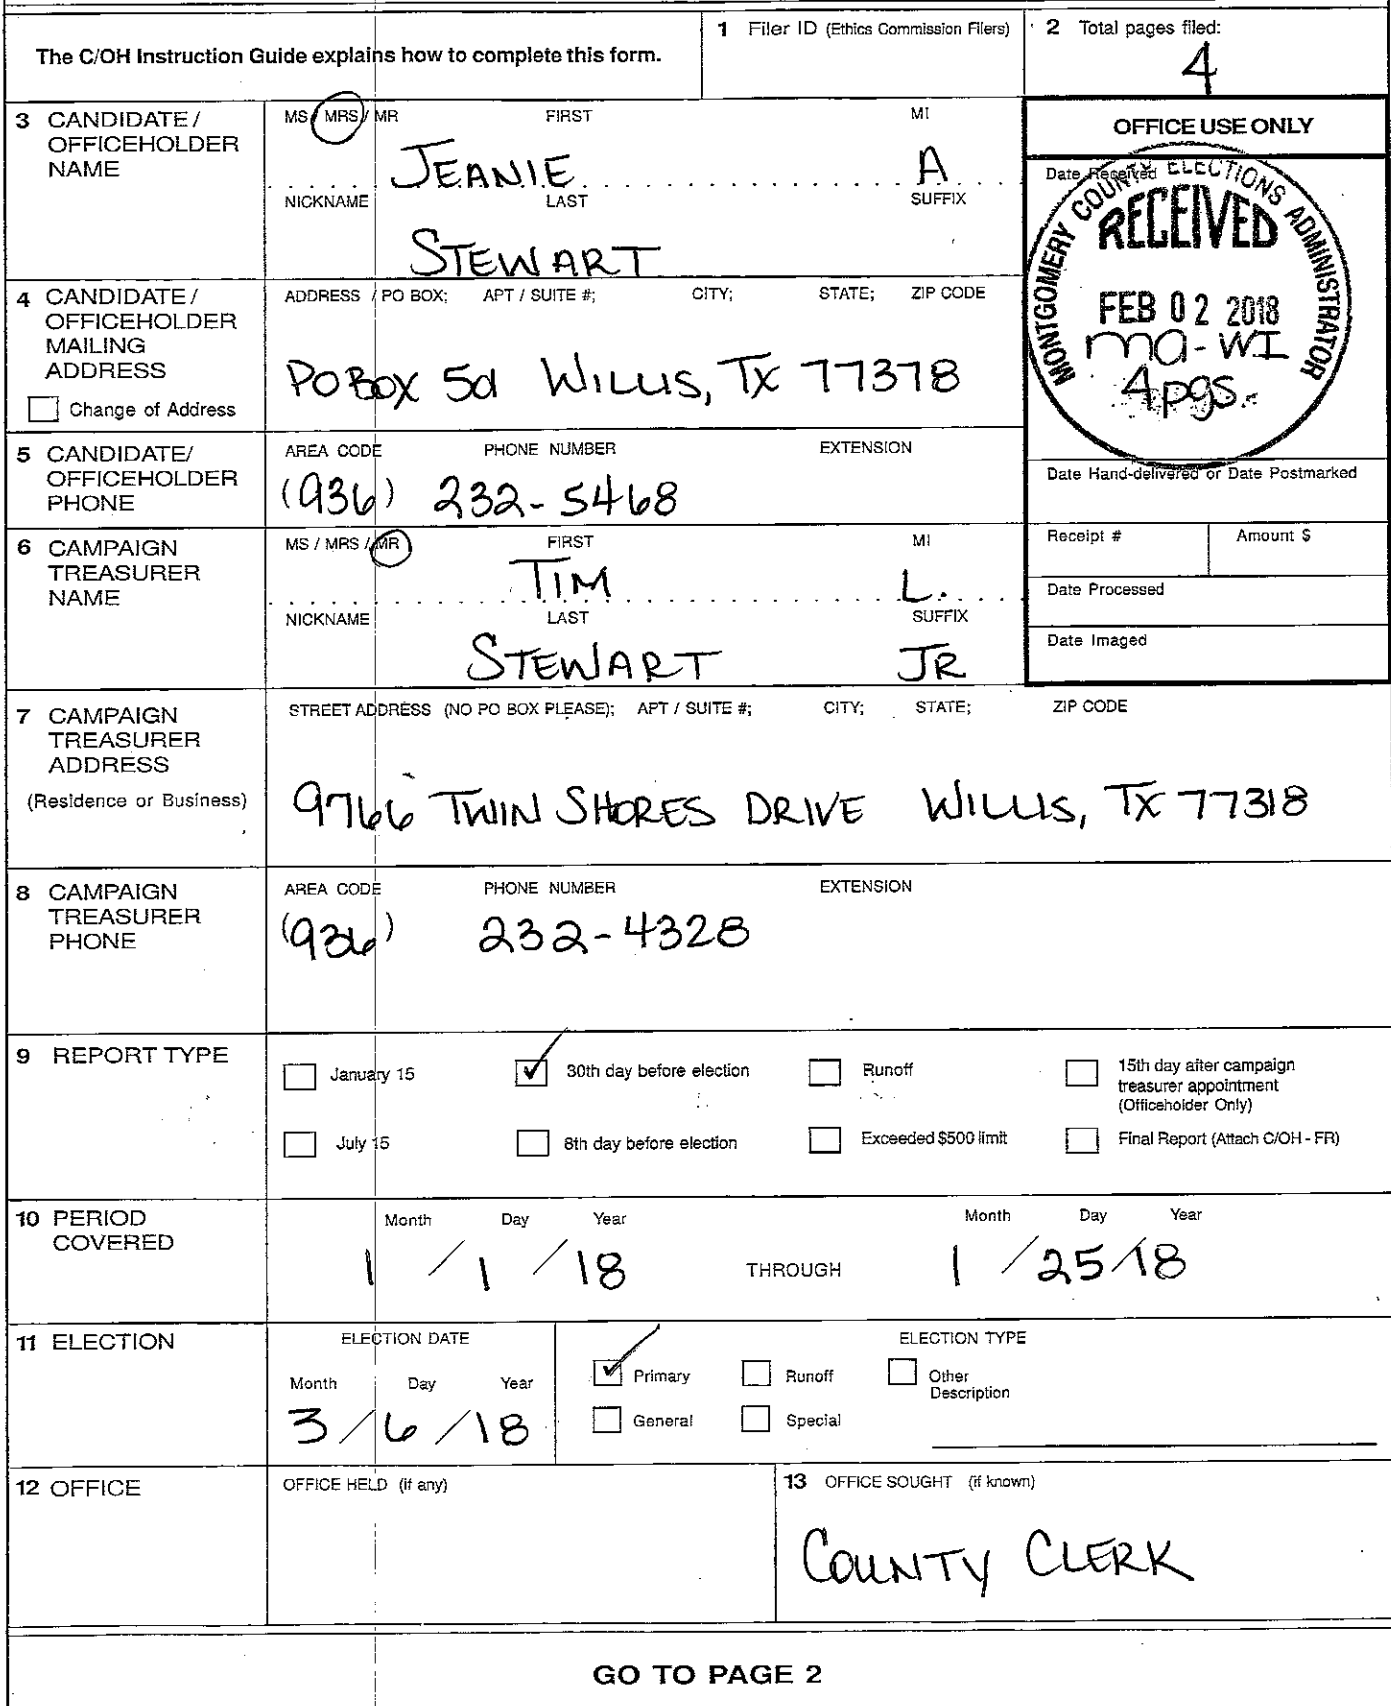 The C/OH Instruction Guide explains how to complete this form.
1 Filer ID (Ethics Commission Filers)
2 Total pages filed:
4
3 CANDIDATE / OFFICEHOLDER NAME
MS / MRS / MR FIRST MI
JEANIE A
NICKNAME LAST SUFFIX
STEWART
OFFICE USE ONLY
Date Received
MONTGOMERY COUNTY ELECTIONS ADMINISTRATOR
RECEIVED
FEB 02 2018
ma-WI
4pgs.
4 CANDIDATE / OFFICEHOLDER MAILING ADDRESS
Change of Address
ADDRESS / PO BOX; APT / SUITE #; CITY; STATE; ZIP CODE
PO BOX WILLIS, TX 77378
5 CANDIDATE/ OFFICEHOLDER PHONE
AREA CODE PHONE NUMBER EXTENSION
(936) 232-5468
Date Hand-delivered or Date Postmarked
Receipt # Amount $
Date Processed
Date Imaged
6 CAMPAIGN TREASURER NAME
MS / MRS / MR FIRST MI
TIM L.
NICKNAME LAST SUFFIX
STEWART JR
7 CAMPAIGN TREASURER ADDRESS
(Residence or Business)
STREET ADDRESS (NO PO BOX PLEASE); APT / SUITE #; CITY; STATE; ZIP CODE
9766 TWIN SHORES DRIVE WILLIS, TX 77318
8 CAMPAIGN TREASURER PHONE
AREA CODE PHONE NUMBER EXTENSION
(936) 232-4328
9 REPORT TYPE
January 15 30th day before election Runoff 15th day after campaign treasurer appointment (Officeholder Only)
July 15 8th day before election Exceeded $500 limit Final Report (Attach C/OH - FR)
10 PERIOD COVERED
Month Day Year Month Day Year
1 / 1 / 18 THROUGH 1 / 25 / 18
11 ELECTION
ELECTION DATE
Month Day Year
3 / 6 / 18
ELECTION TYPE
Primary Runoff Other Description
General Special
12 OFFICE
OFFICE HELD (if any)
13 OFFICE SOUGHT (if known)
COUNTY CLERK
GO TO PAGE 2